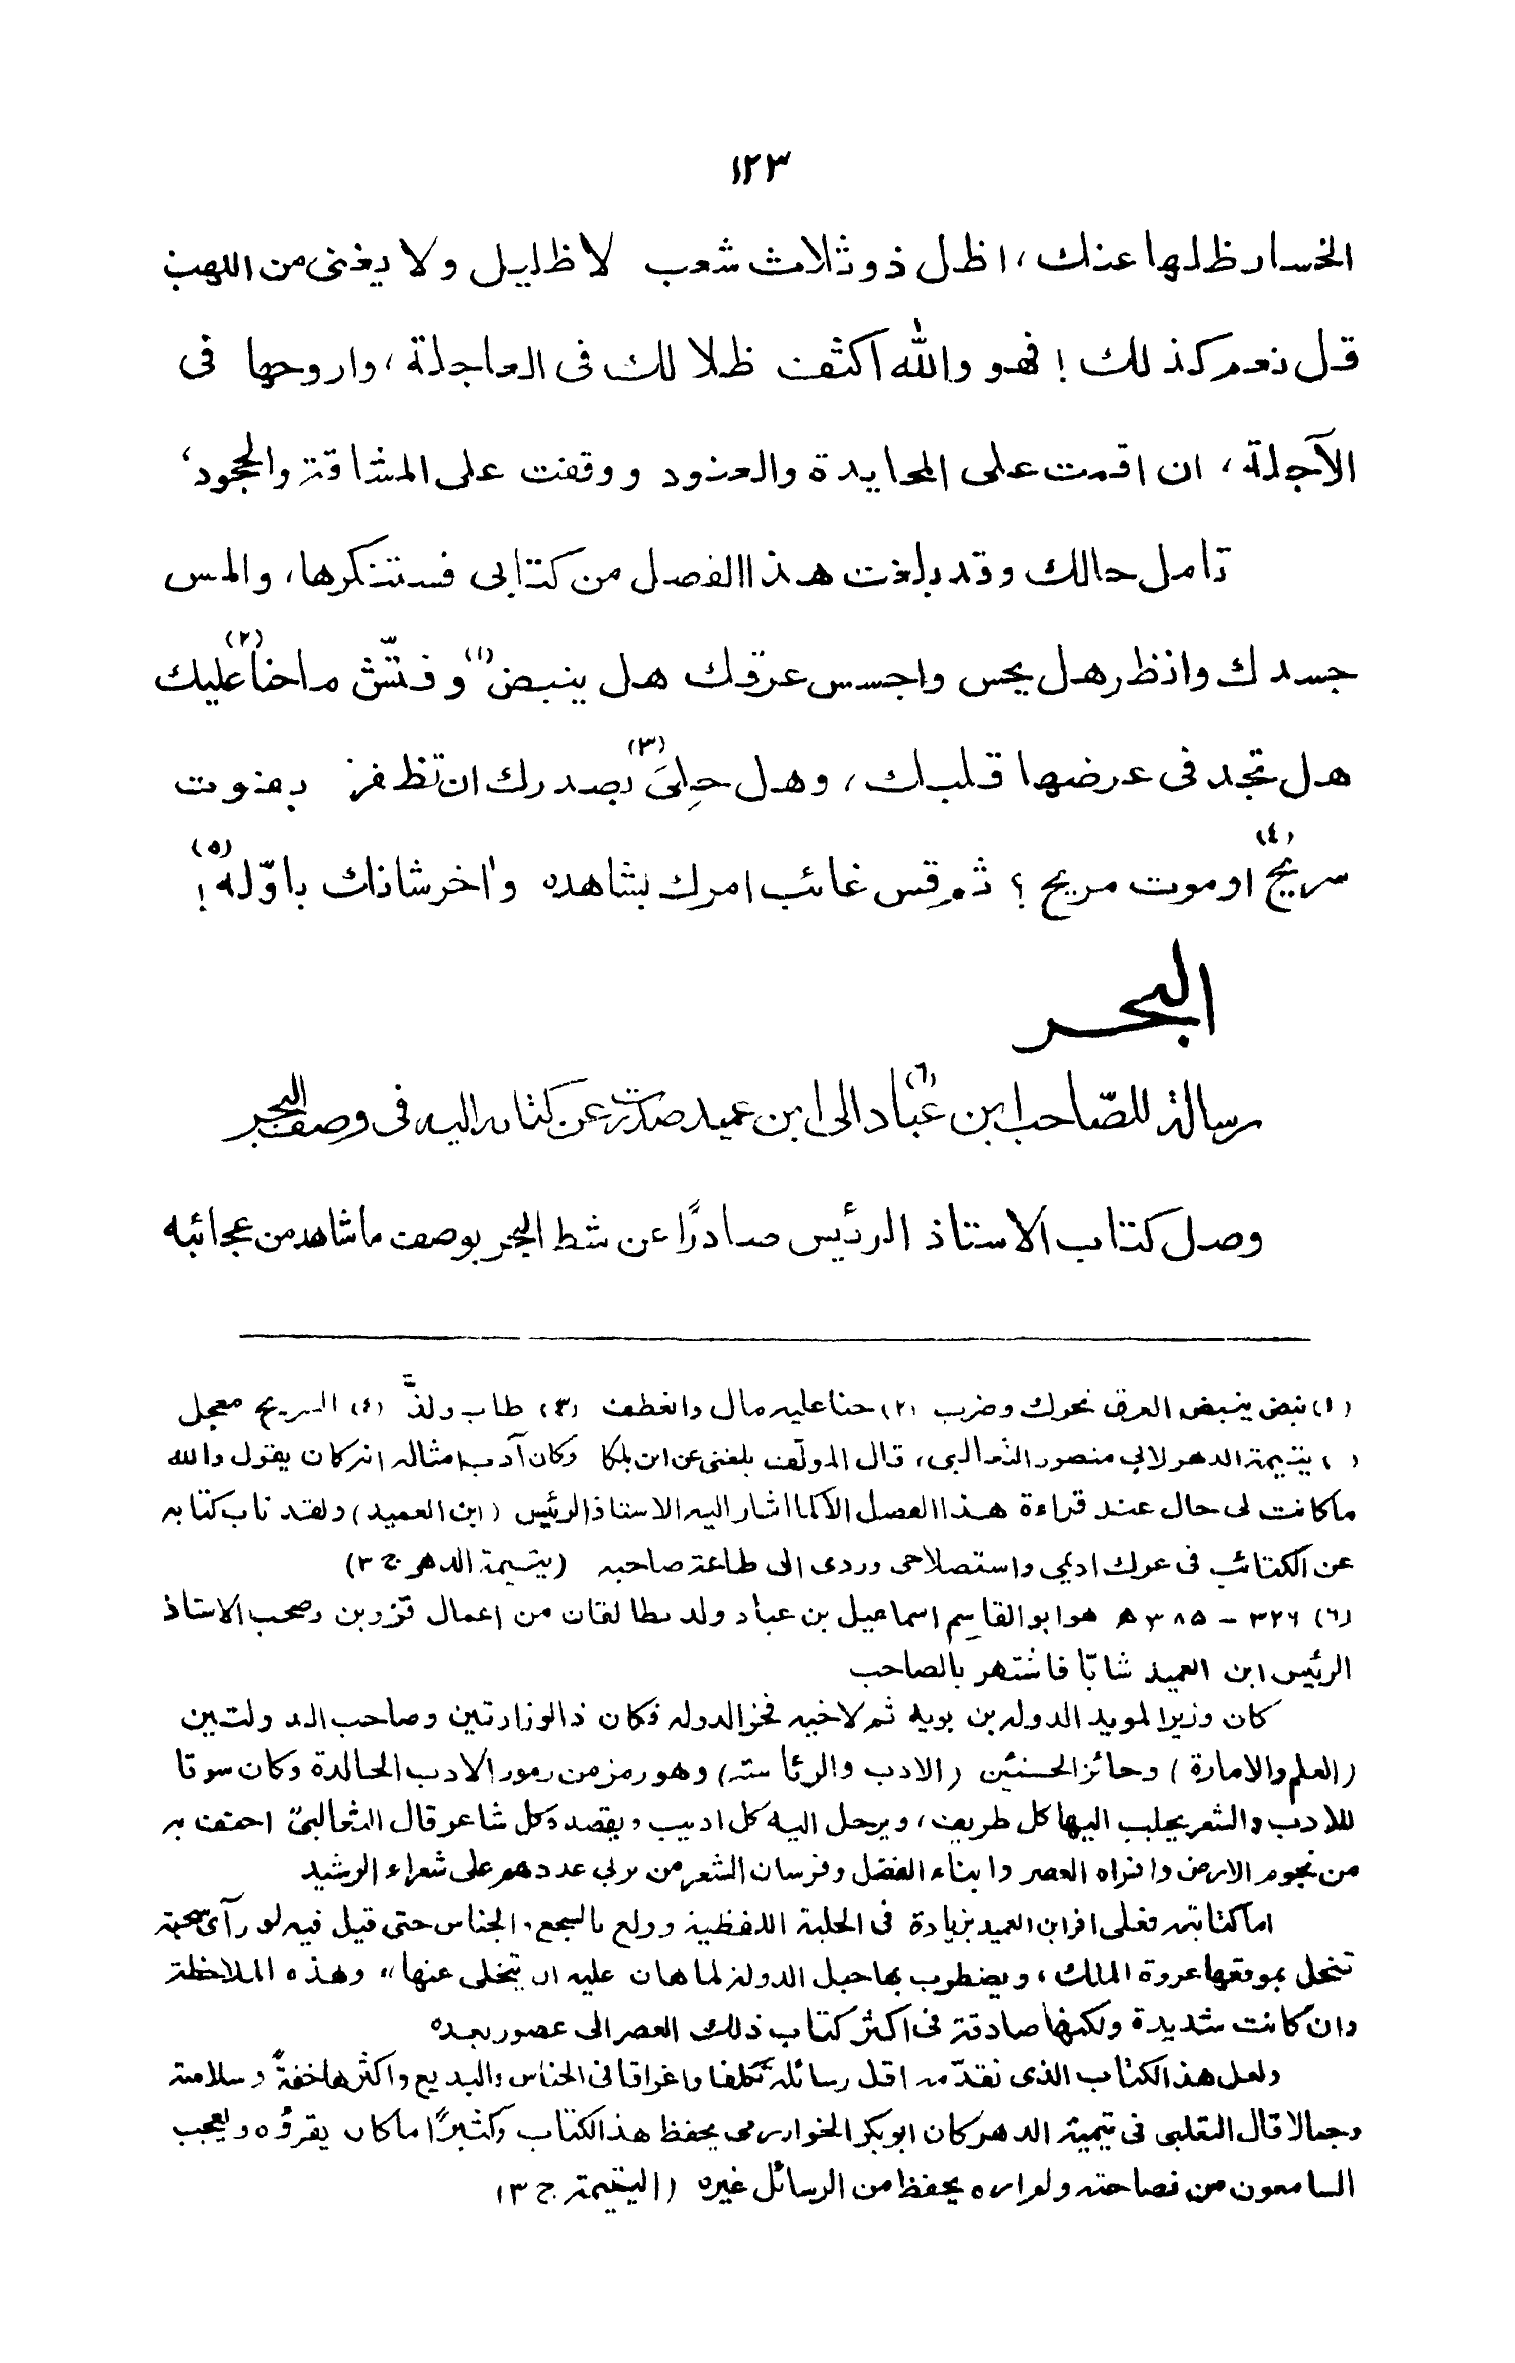 ١٢٣
الخسار ظلها عنك، اظل ذو ثلاث شعب لا ظليل ولا يغنى من اللهب
قل نعم كذلك ! فهو والله اكثف ظلا لك فى العاجلة، واروحها فى
الآجلة، ان اقمت على المحايدة والعنود ووقفت على المشاقة والجحود،
تامل حالك وقد بلغت هذا الفصل من كتابى فستنكرها، والمس
جسدك وانظر هل يحس واجسس عرقك هل ينبض (١) وفتّش ما حنا (٢) عليك
هل تجد فى عرضها قلبك، وهل حِلىَ (٣) بصدرك ان تظفر بفوت
سريح (٤) او موت مريح ؟ ثم قس غائب امرك بشاهده واٰخر شانك باوّله (٥) !
البحر
رسالة للصّاحب ابن عبّاد (٦) الى ابن عميد صدرت عن كتابه اليه فى وصف البحر
وصل كتاب الاستاذ الرئيس صادرًا عن شط البحر بوصف ما شاهد من عجائبه
(١) نبض ينبض العرق تحرك وضرب (٢) حنا عليه مال وانعطف (٣) طاب ولذّ (٤) السريح معجل
( ) يتيمة الدهر لابي منصور الثعالبى، قال المولف بلغنى عن ابن بلكا وكان آدب امثاله انه كان يقول والله
ما كانت لى حال عند قراءة هذا الفصل الا كما اشار اليه الاستاذ الرئيس (ابن العميد) ولقد ناب كتابه
عن الكتائب فى عرك اديمي واستصلاحى وردى الى طاعة صاحبه (يتيمة الدهر ج ٣)
(٦) ٣٢٦ - ٣٨٥ ھ هو ابو القاسِم اسماعيل بن عباد ولد بطالقان من اعمال قزوين وصحب الاستاذ
الرئيس ابن العميد شابّا فاشتهر بالصاحب
كان وزيرا لمويد الدوله بن بويه ثم لاخيه فخر الدوله فكان ذا الوزارتين وصاحب الدولتين
(العلم والامارة) وحائز الحسنئين (الادب والرئاسته) وهو رمز من رموز الادب الخالدة وكان سوقا
للادب والشعر يجلب اليها كل طريف، ويرحل اليه كل اديب ويقصده كل شاعر قال الثعالبىّ احتف به
من نجوم الارض وافراه العصر وابناء الفضل وفرسان الشعر من يربي عددهم على شعراء الرشيد
اما كتابته فعلى اثر ابن العميد بزيادة فى الحلية اللفظية وولع بالسجع، الجناس حتى قيل فيه لو رآى سجعة
تنحل بموقعها عروة الملك، ويضطرب بها حبل الدولة لما هان عليه ان يتخلى عنها" وهذه الملاحظة
وان كانت شديدة ولكنها صادقة فى اكثر كتاب ذلك العصر الى عصور بعده
ولعل هذ الكتاب الذى نقدّمه اقل رسائله تكلفا واغراقا فى الجناس والبديع واكثرها خفةً وسلامة
وجمالا قال الثعلبى فى يتيمة الدهر كان ابوبكر الخوارزمى يحفظ هذ الكتاب وكثيرًا ما كان يقرؤه ويعجب
السامعون من فصاحته ولم اره يحفظ من الرسائل غيره (اليتيمة ج ٣)